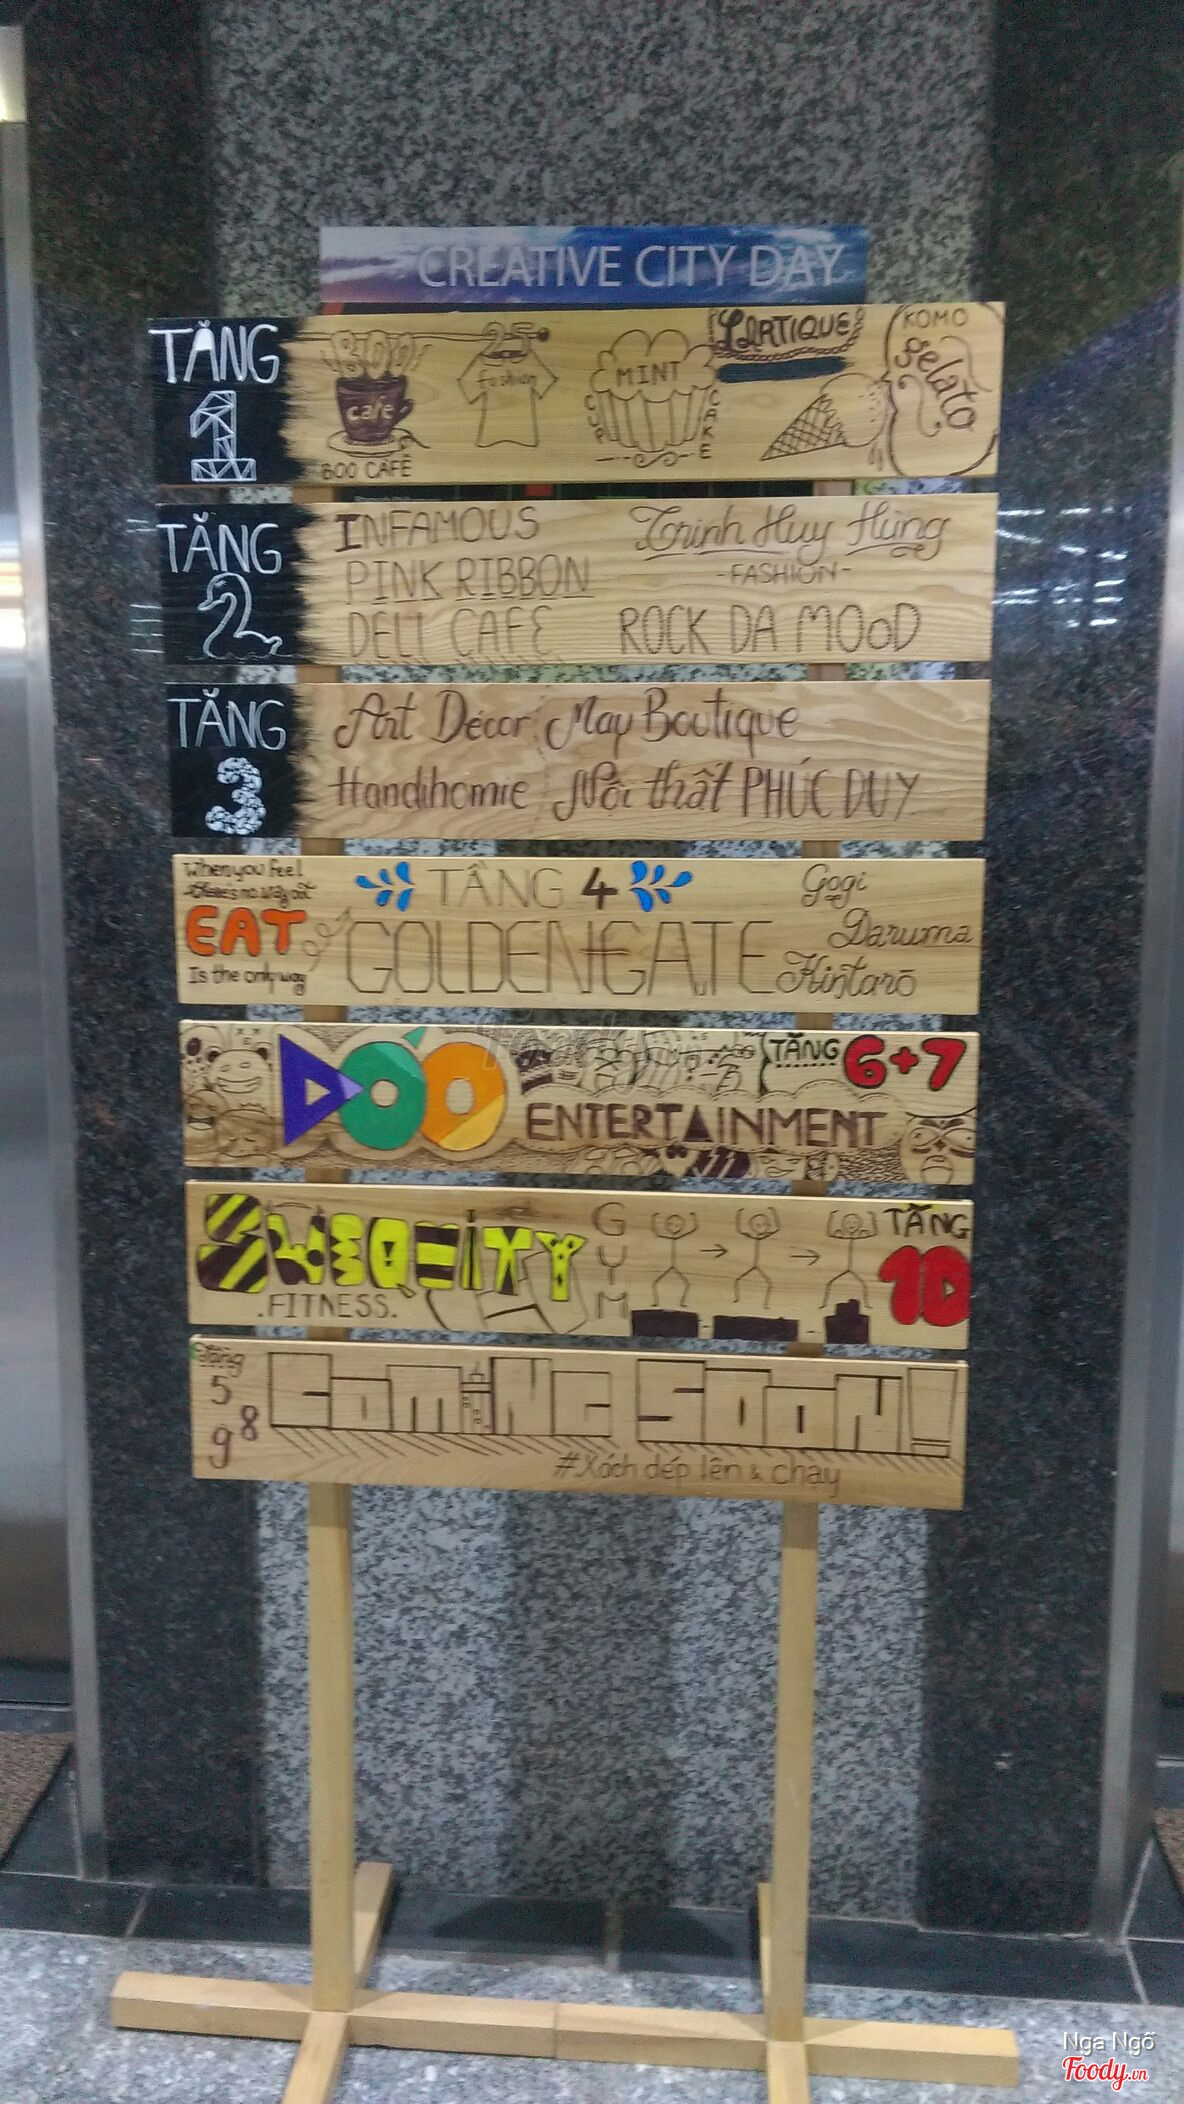 CREATIVE CITY DAY
TẦNG 1
BOO
cafe
BOO CAFÊ
25
fashion
MINT
CUP CAKE
LARTIQUE
KOMO
gelato
TẦNG 2
INFAMOUS
PINK RIBBON
DELI CAFE
Trinh Huy Hùng
-FASHION-
ROCK DA MOOD
TẦNG 3
Art Décor May Boutique
Handihomie Nội thất PHÚC DUY
When you feel
there's no way out
EAT
Is the only way
TẦNG 4
GOLDENGATE
Gogi
Daruma
Kintarō
TẦNG 6+7
ENTERTAINMENT
SWEQUITY
.FITNESS.
GYM
TẦNG
10
Tầng
5
8
9
COMING SOON!!
#Xách dép lên & chạy
Nga Ngố
Foody.vn